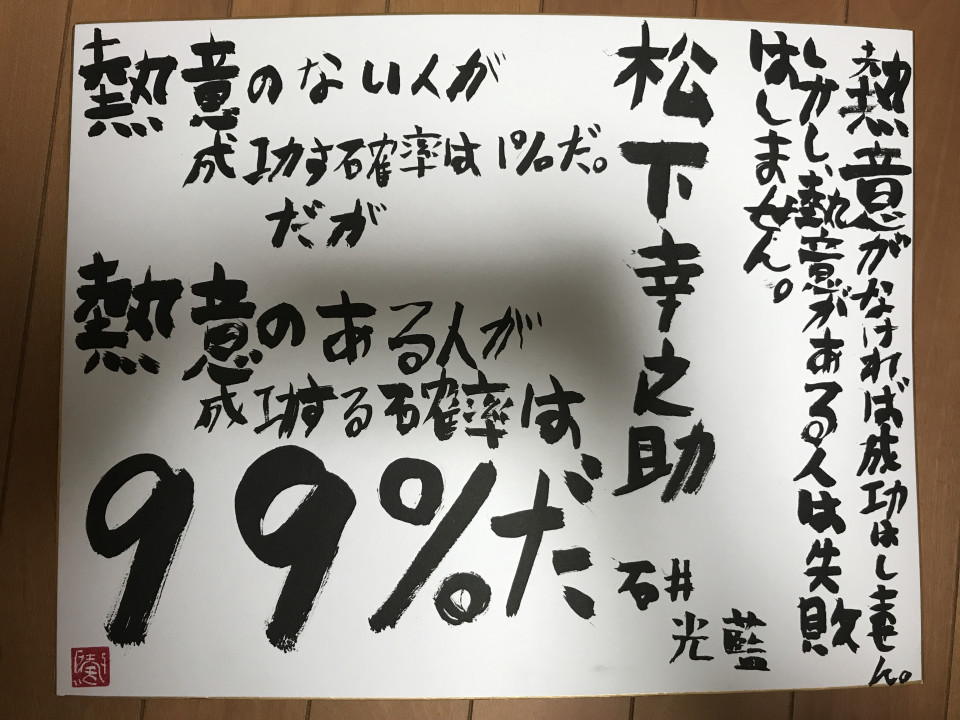 熱意がなければ成功はしません。
しかし、熱意がある人は失敗
はしません。
松下幸之助
石井
光藍
熱意のない人が
成功する確率は1%だ。
だが
熱意のある人が
成功する確率は
99%だ